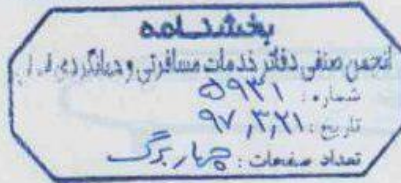 بخشنامه
انجمن صنفی دفاتر خدمات مسافرتی و جهانگردی
شماره: ۵۹۳۱
تاریخ: ۹۷,۳,۲۱
تعداد صفحات: چهار برگ